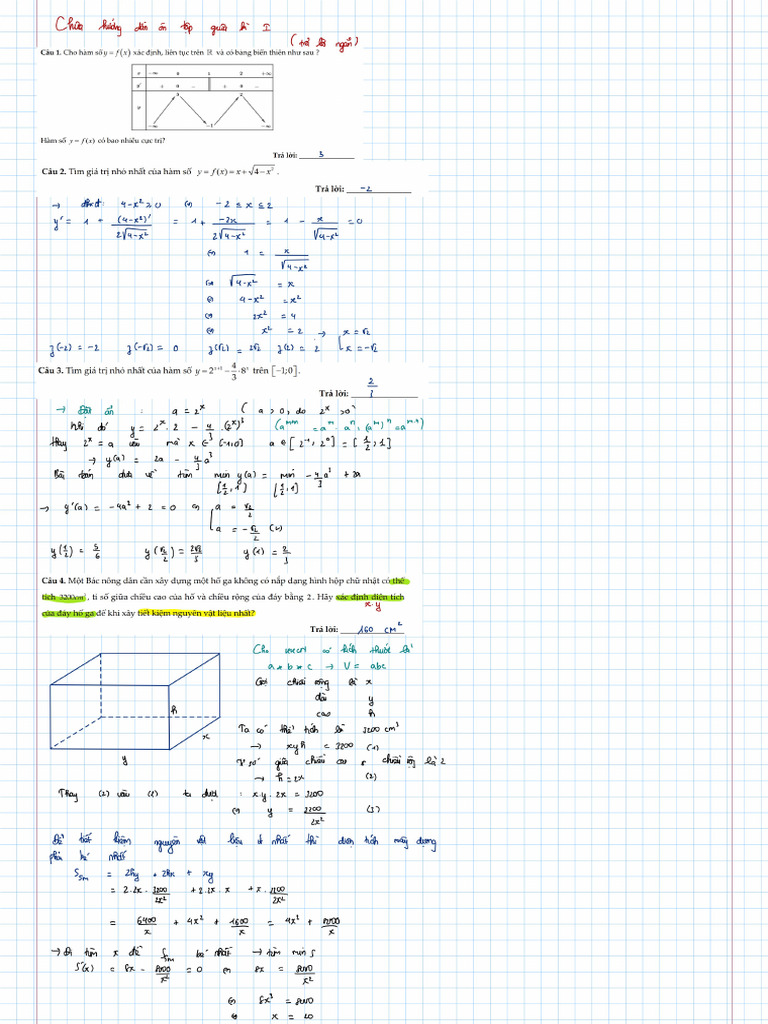 Chữa hướng dẫn ôn tập giữa kì I
(trả lời ngắn)
Câu 1. Cho hàm số y = f(x) xác định, liên tục trên ℝ và có bảng biến thiên như sau ?
x -∞ 0 1 2 +∞
y' + 0 - || + 0 -
y 3 2
-∞ -1 -∞
Hàm số y = f(x) có bao nhiêu cực trị?
Trả lời: 3
Câu 2. Tìm giá trị nhỏ nhất của hàm số y = f(x) = x + √(4-x²) .
Trả lời: -2
→ đkxđ: 4-x² ≥ 0 (=) -2 ≤ x ≤ 2
y' = 1 + (4-x²)' / 2√(4-x²) = 1 + -2x / 2√(4-x²) = 1 - x / √(4-x²) = 0
(=) 1 = x / √(4-x²)
(=) √(4-x²) = x
(=) 4-x² = x²
(=) 2x² = 4
(=) x² = 2 → [ x = √2
x = -√2
y(-2) = -2 y(-√2) = 0 y(√2) = 2√2 y(2) = 2
Câu 3. Tìm giá trị nhỏ nhất của hàm số y = 2^(x+1) - 4/3 · 8^x trên [-1;0].
Trả lời: 2/3
→ Đặt ẩn : a = 2^x ( a > 0, do 2^x > 0
khi đó y = 2^x . 2 - 4/3 . (2^x)³ (a^(m+n) = a^m . a^n ; (a^m)^n = a^(m.n))
thay 2^x = a vào mà x ∈ [-1,0] a ∈ [2^-1, 2^0] = [1/2, 1]
→ y(a) = 2a - 4/3 a³
Bài toán đưa về tìm min y(a) = min - 4/3 a³ + 2a
[1/2, 1] [1/2, 1]
→ y'(a) = -4a² + 2 = 0 (=) [ a = √2/2
a = -√2/2 (L)
y(1/2) = 5/6 y(√2/2) = 2√2/3 y(1) = 2/3
Câu 4. Một Bác nông dân cần xây dựng một hố ga không có nắp dạng hình hộp chữ nhật có thể
tích 3200cm³, tỉ số giữa chiều cao của hố và chiều rộng của đáy bằng 2. Hãy xác định diện tích
x.y
của đáy hố ga để khi xây tiết kiệm nguyên vật liệu nhất?
Trả lời: 160 cm²
Cho hhcn có kích thước là
a * b * c → V = abc
Gọi chiều rộng là x
dài y
cao h
h
x
y
Ta có thể tích là 3200 cm³
→ xyh = 3200 (1)
Tỉ số giữa chiều cao & chiều rộng là 2
→ h = 2x (2)
Thay (2) vào (1) ta được : xy.2x = 3200
(=) y = 3200 / 2x² (3)
Để tiết kiệm nguyên vật liệu ít nhất thì diện tích mấy dựng
phải bé nhất
S = 2hy + 2hx + xy
= 2.2x . 3200/2x² + 2.2x.x + x . 3200/2x²
= 6400/x + 4x² + 1600/x = 4x² + 8000/x
→ Đi tìm x để S bé nhất → tìm min S
S'(x) = 8x - 8000/x² = 0 (=) 8x = 8000/x²
(=) 8x³ = 8000
(=) x = 10